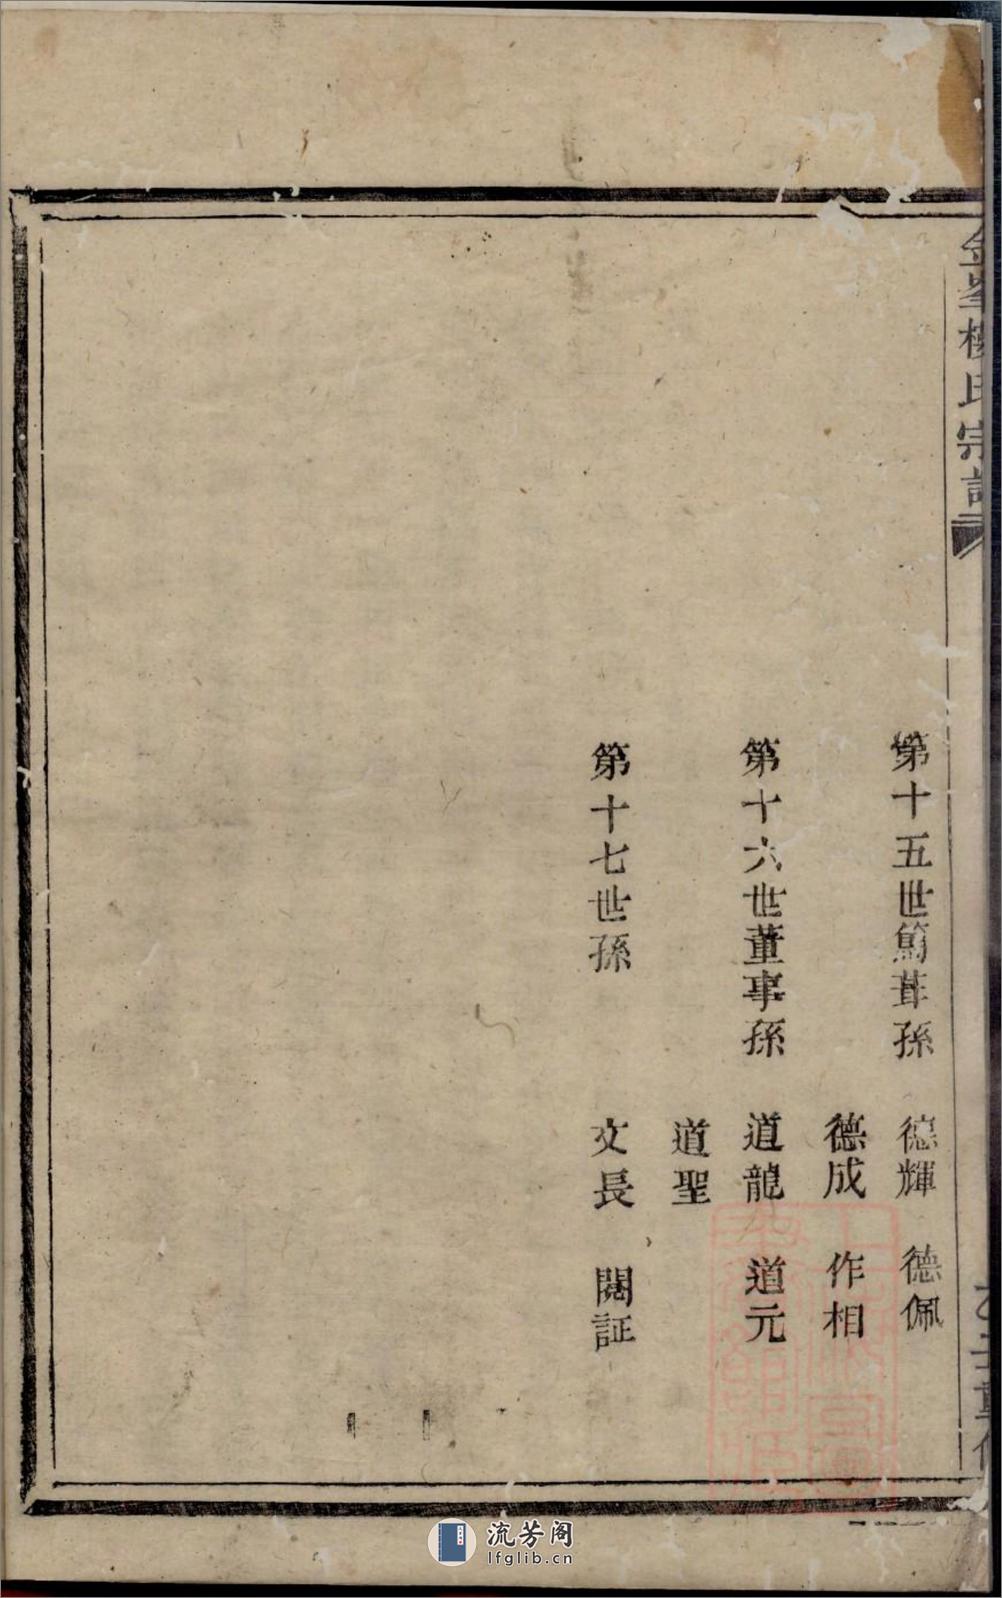 金峯楊氏宗譜
第十五世篤葺孫 德輝 德佩
德成 作相
第十六世董事孫 道龍 道元
道聖
第十七世孫 文長 閱証
流芳阁
lfglib.cn